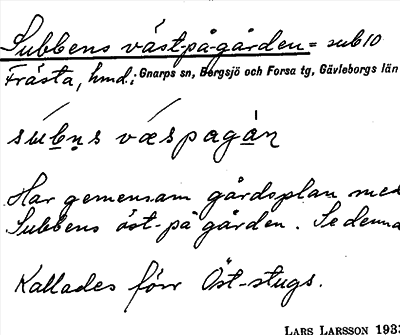 Subbens väst-på-gården = sub 10
Frästa, hmd; Gnarps sn, Bergsjö och Forsa tg, Gävleborgs län
súbn̥s væspagán
Har gemensam gårdsplan med
Subbens öst-på gården. Se denna
Kallades förr Öst-stugs.
LARS LARSSON 193